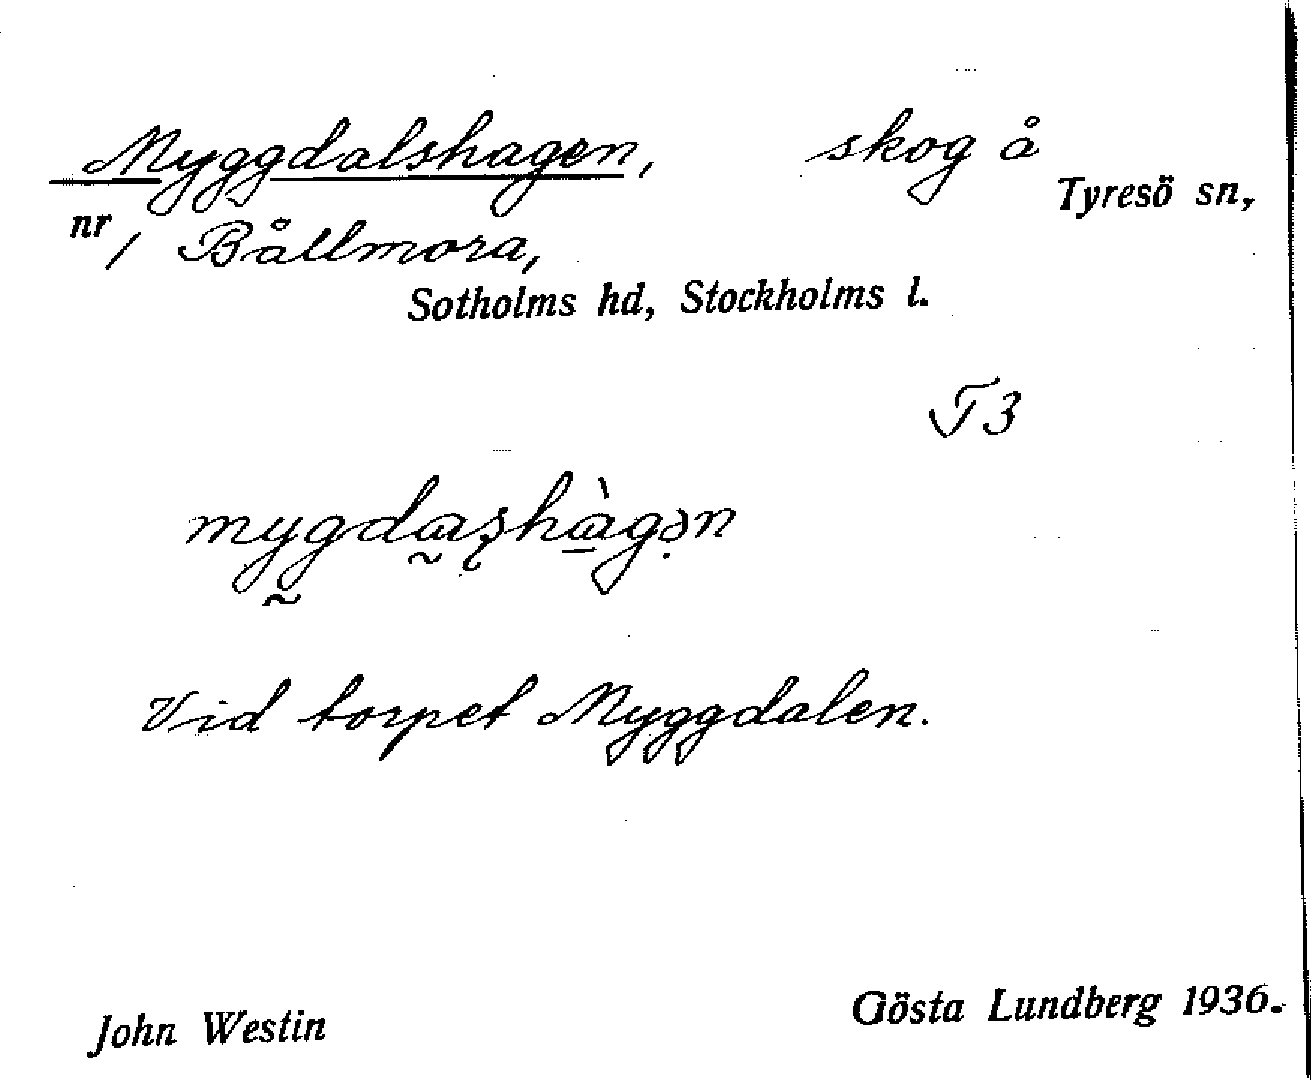 Myggdalshagen, skog å
Tyresö sn,
nr 1 Bållmora,
Sotholms hd, Stockholms l.
T3
Vid torpet Myggdalen.
John Westin Gösta Lundberg 1936.